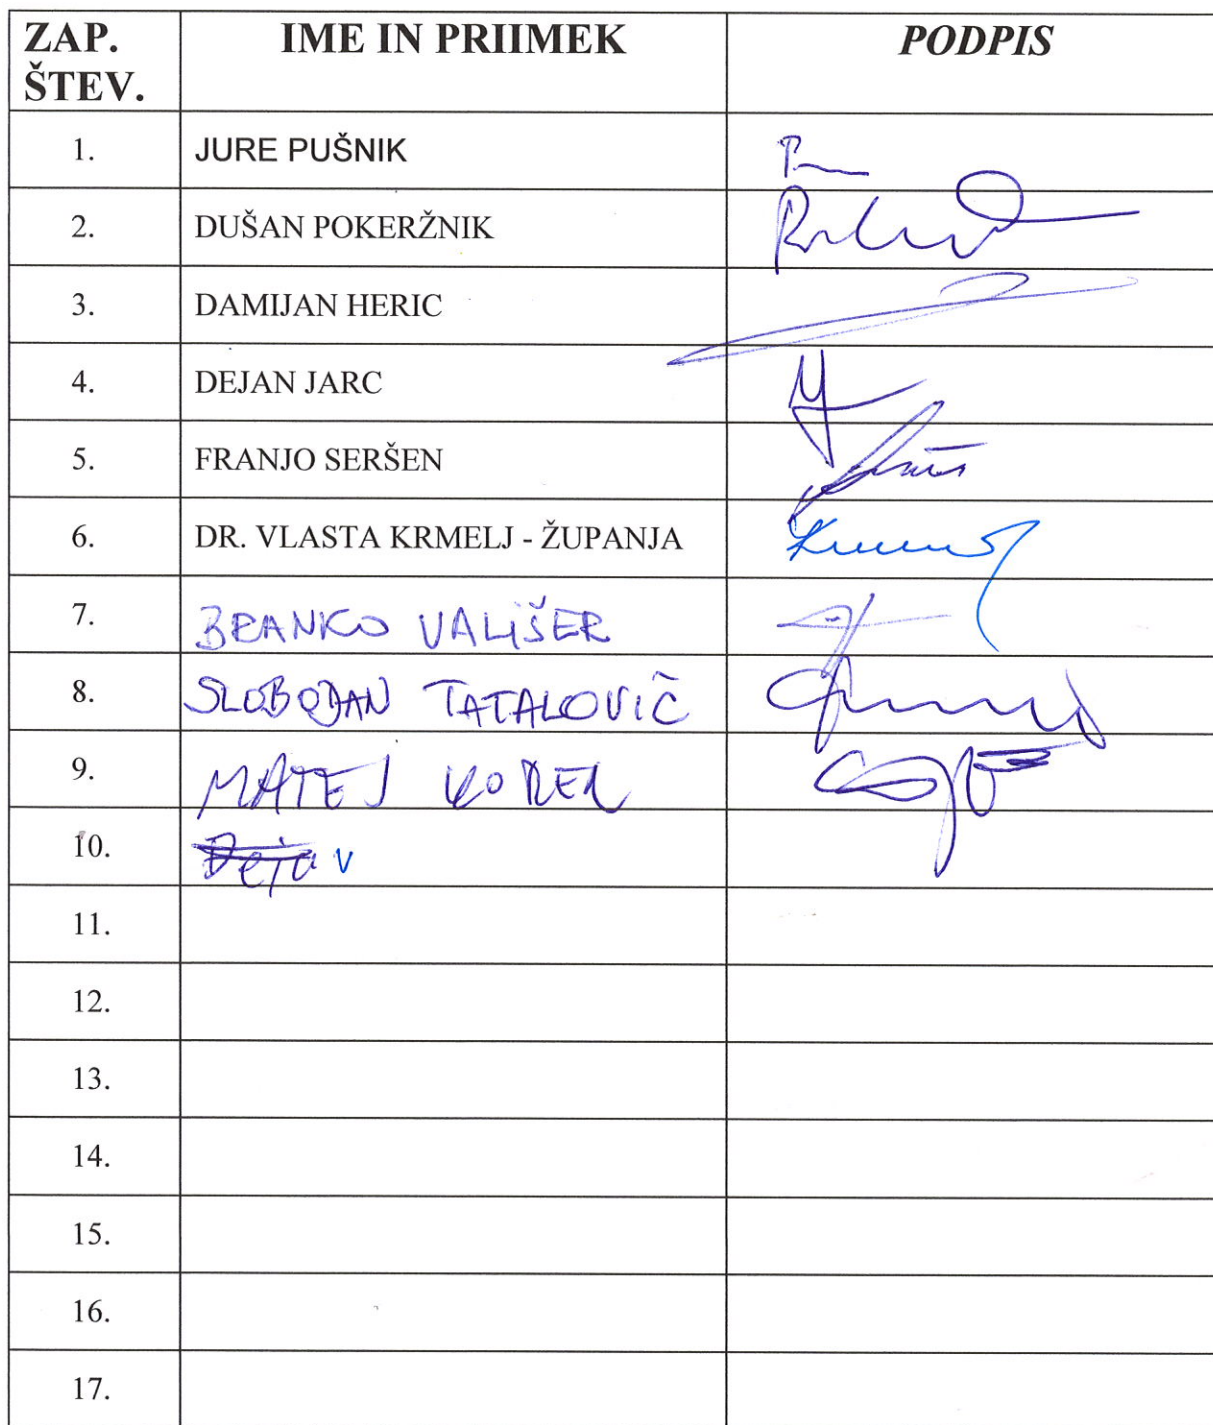 ZAP. ŠTEV. IME IN PRIIMEK PODPIS
1. JURE PUŠNIK
2. DUŠAN POKERŽNIK
3. DAMIJAN HERIC
4. DEJAN JARC
5. FRANJO SERŠEN
6. DR. VLASTA KRMELJ - ŽUPANJA
7. BRANKO VALIŠER
8. SLOBODAN TATALOVIČ
9. MATEJ KOREN
10.
11.
12.
13.
14.
15.
16.
17.